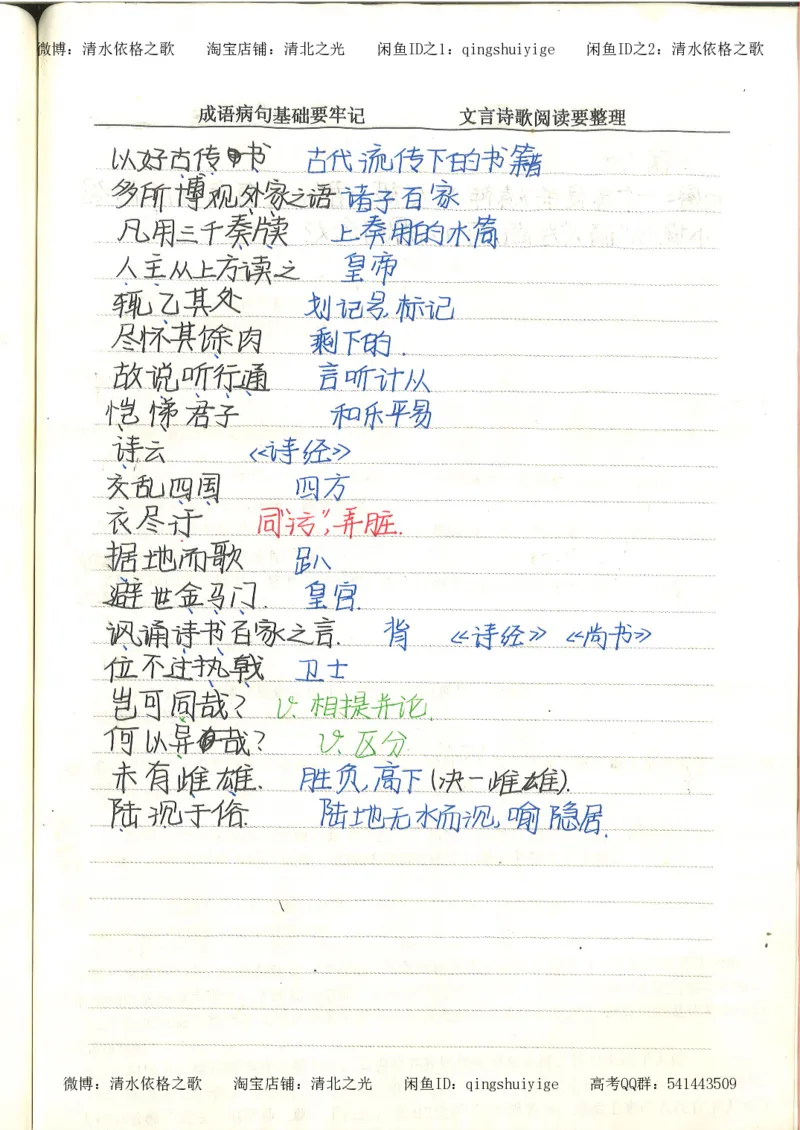 微博：清水依格之歌 淘宝店铺：清北之光 闲鱼ID之1：qingshuiyige 闲鱼ID之2：清水依格之歌
成语病句基础要牢记 文言诗歌阅读要整理
以好古传书 古代流传下的书籍
多所博观外家之语 诸子百家
凡用三千奏牍 上奏用的木简
人主从上方读之 皇帝
辄乙其处 划记号,标记
尽怀其馀肉 剩下的.
故说听行通 言听计从
恺悌君子 和乐平易
诗云 《诗经》
交乱四国 四方
衣尽汙 同“污”,弄脏.
据地而歌 趴
避世金马门. 皇宫.
讽诵诗书百家之言. 背 《诗经》《尚书》
位不过执戟 卫士
岂可同哉? v.相提并论.
何以异哉? v.区分
未有雌雄. 胜负,高下(决一雌雄).
陆沉于俗. 陆地无水而沉,喻隐居.
微博：清水依格之歌 淘宝店铺：清北之光 闲鱼ID：qingshuiyige 高考QQ群：541443509